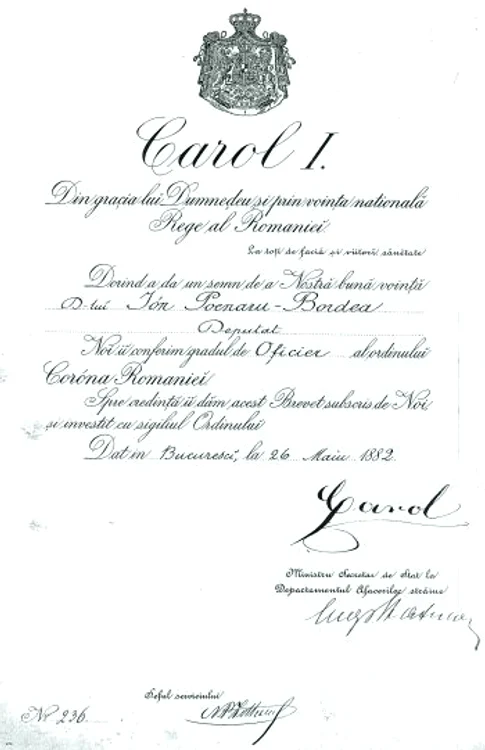 Carol I.
Din grația lui Dumnedeu și prin voința natională
Rege al Romaniei
La toți de facia și viitori sănătate
Dorind a da un semn de a Nostră bună voință
D-lui Ión Poenaru-Bordea
Deputat
Noi ii conferim gradul de Oficier al ordinului
Coróna Romaniei
Spre credință ii dăm acest Brevet subscris de Noi
și investit cu sigiliul Ordinului
Dat in Bucuresci, la 26 Maiu 1882.
Carol
Ministru Secretar de Stat la
Departamentul Afacerilor străine
Șeful serviciului
No 236.